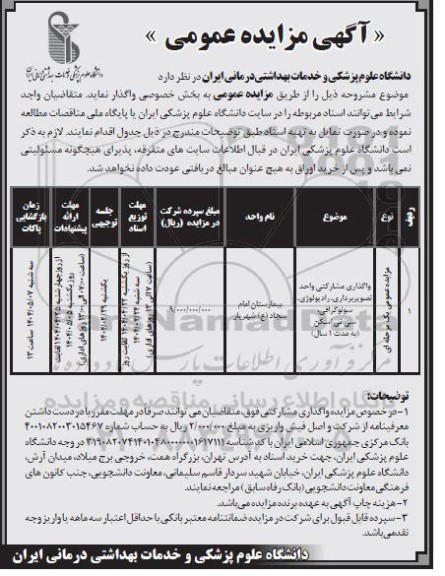 « آگهی مزایده عمومی »
دانشگاه علوم پزشکی و خدمات بهداشتی درمانی ایران در نظر دارد
موضوع مشروحه ذیل را از طریق مزایده عمومی به بخش خصوصی واگذار نماید. متقاضیان واجد
شرایط می توانند اسناد مربوطه را در سایت دانشگاه علوم پزشکی ایران یا پایگاه ملی مناقصات مطالعه
نموده و در صورت تمایل به تهیه اسناد طبق توضیحات مندرج در ذیل جدول اقدام نمایند. لازم به ذکر
است دانشگاه علوم پزشکی ایران در قبال اطلاعات سایت های متفرقه، پذیرای هیچگونه مسئولیتی
نمی باشد و پس از خرید اوراق به هیچ عنوان مبالغ دریافتی عودت داده نخواهد شد.
ردیف
نوع
موضوع
نام واحد
مبلغ سپرده شرکت در مزایده (ریال)
مهلت توزیع اسناد
جلسه توجیهی
مهلت ارائه پیشنهادات
زمان بازگشایی پاکات
مزایده عمومی یک مرحله ای
واگذاری مشارکتی واحد
تصویربرداری، رادیولوژی،
سونوگرافی،
سی تی اسکن
(به مدت ۱ سال)
بیمارستان امام
سجاد (ع) شهریار
توضیحات:
۱- در خصوص مزایده واگذاری مشارکتی فوق، متقاضیان می توانند صرفا در مهلت مقرر با در دست داشتن
معرفینامه از شرکت و اصل فیش واریزی به مبلغ ۲/۰۰۰/۰۰۰ ریال به حساب شماره ۴۰۰۱۰۸۲۰۰۳۰۱۵۴۶۷
بانک مرکزی جمهوری اسلامی ایران با کد شناسه در وجه دانشگاه
علوم پزشکی ایران، جهت خرید اسناد به آدرس تهران، بزرگراه همت، خروجی برج میلاد، میدان آرش،
دانشگاه علوم پزشکی ایران، خیابان شهید سردار قاسم سلیمانی، معاونت دانشجویی، جنب کانون های
فرهنگی معاونت دانشجویی (بانک رفاه سابق) مراجعه نمایند.
۲- هزینه چاپ آگهی به عهده برنده مزایده می باشد.
۳- سپرده قابل قبول برای شرکت در مزایده ضمانتنامه معتبر بانکی با حداقل اعتبار سه ماهه یا واریز وجه
نقد می باشد.
دانشگاه علوم پزشکی و خدمات بهداشتی درمانی ایران